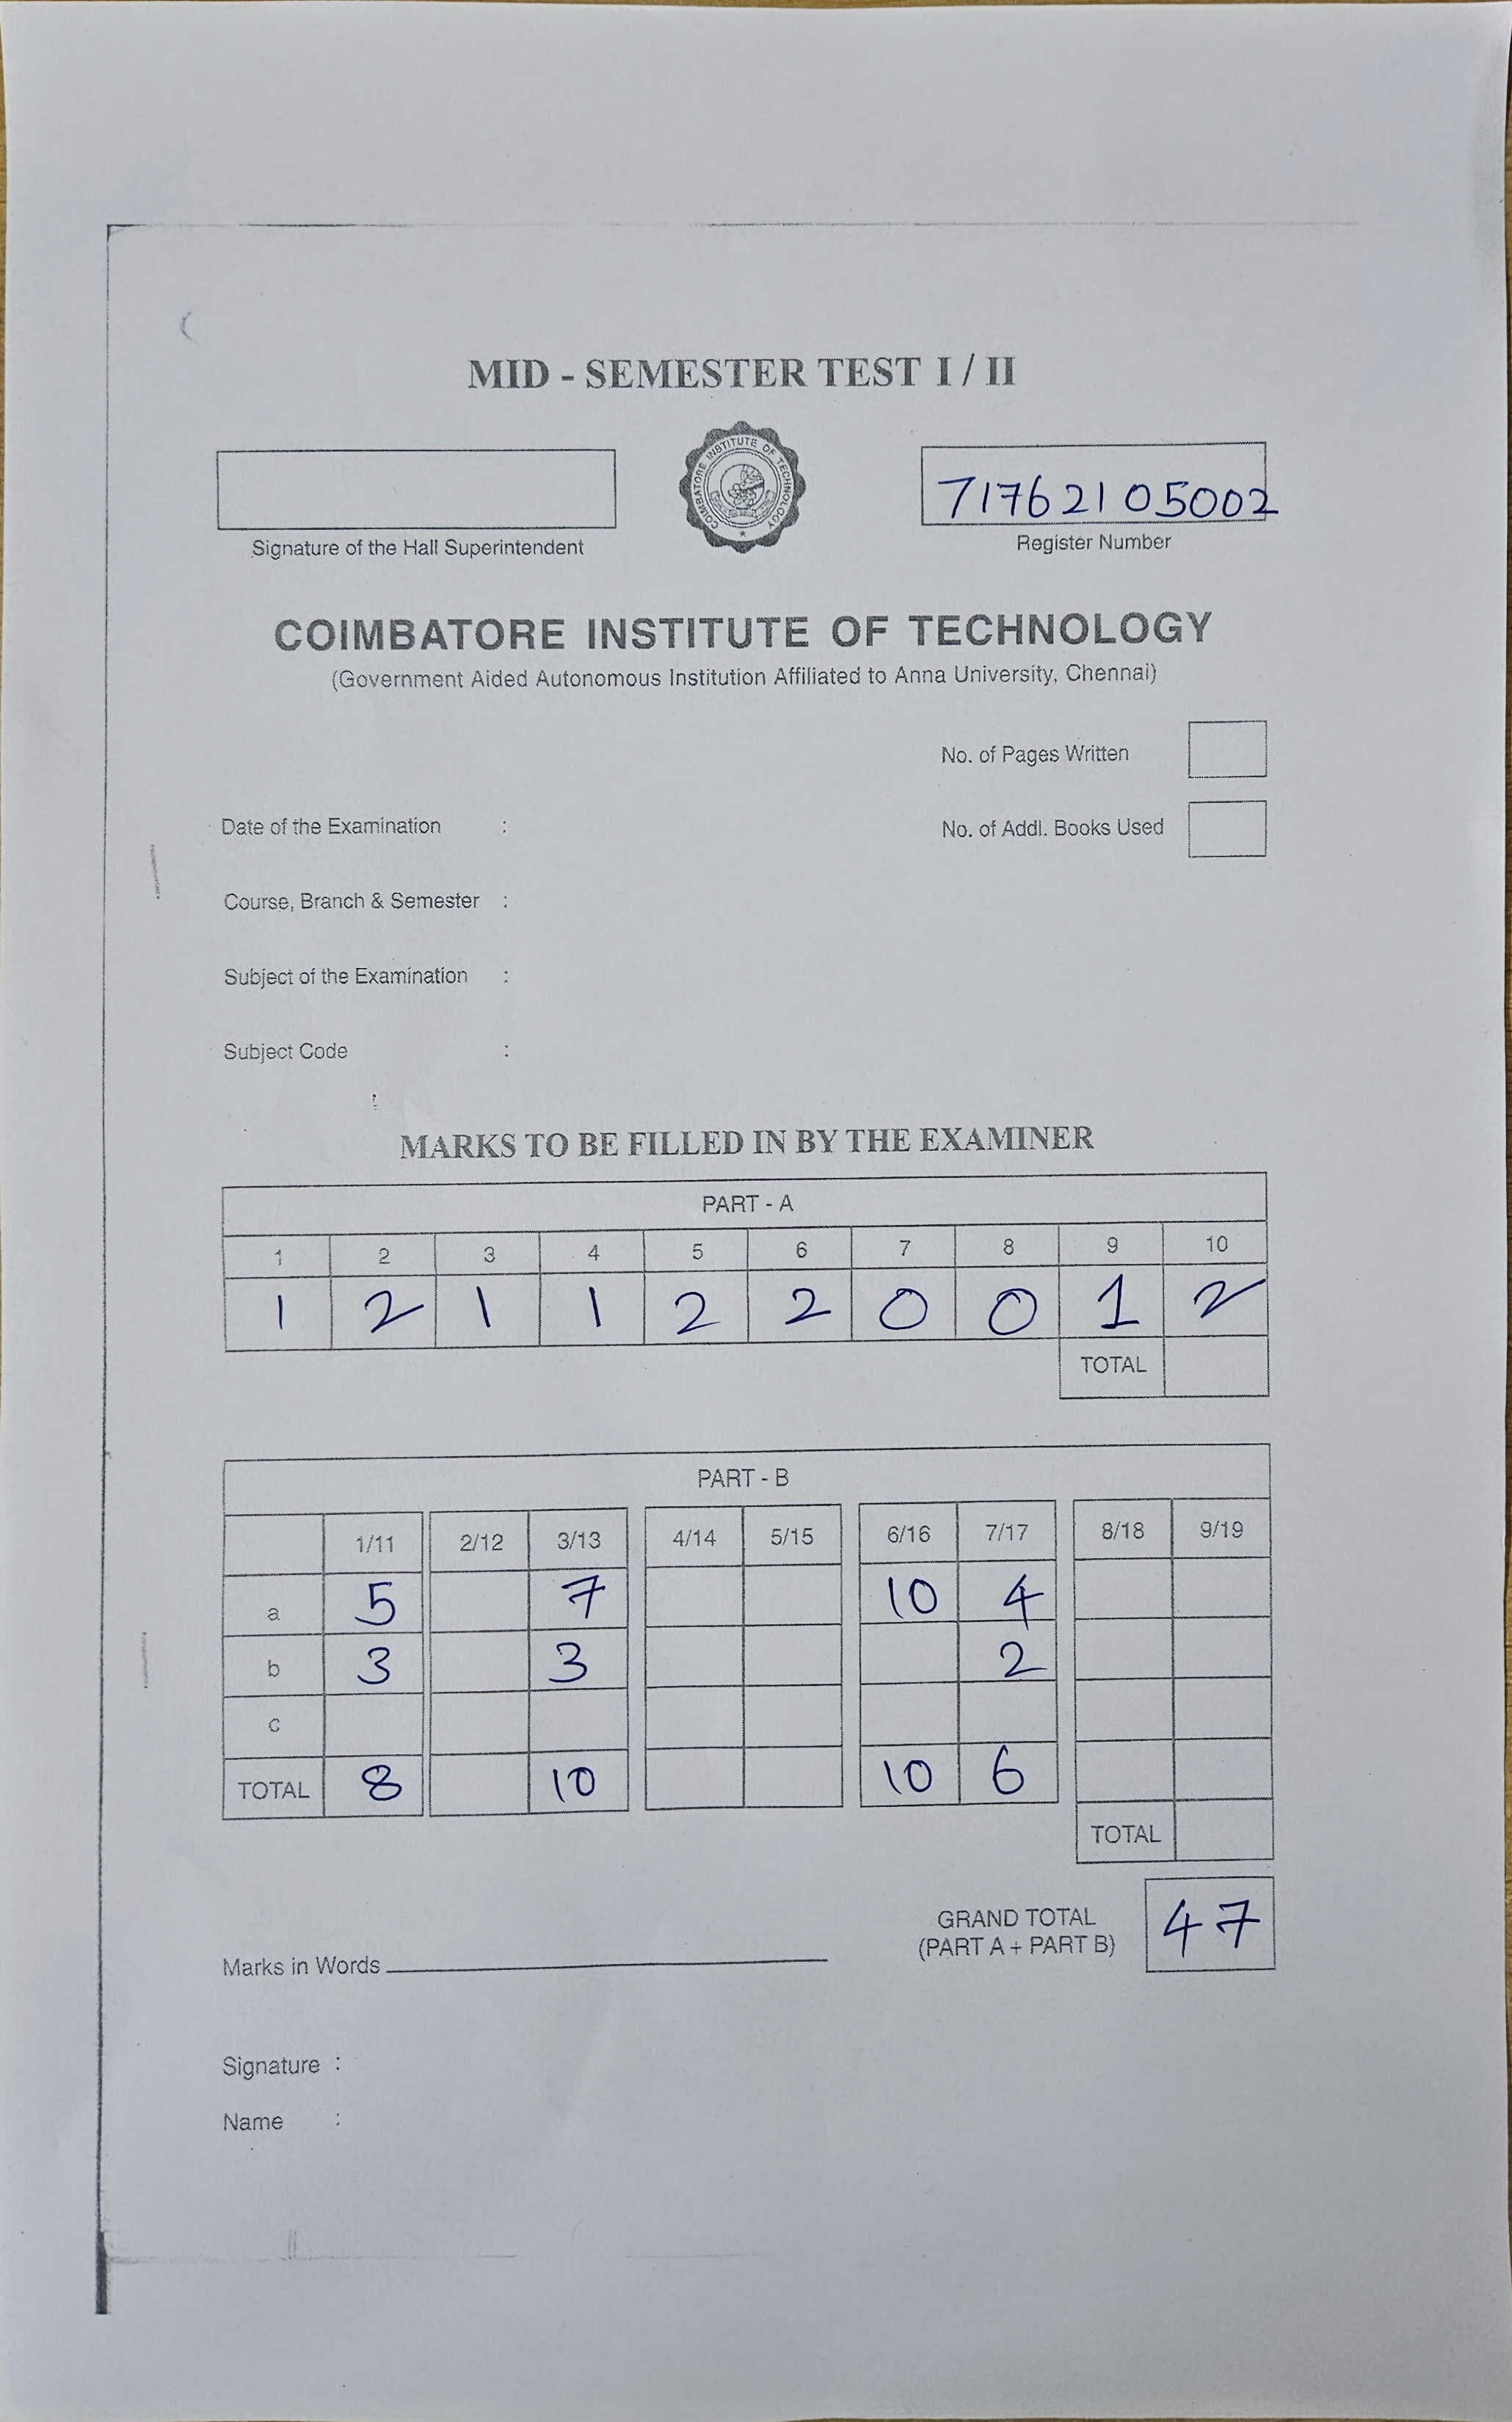 MID - SEMESTER TEST I / II
COIMBATORE INSTITUTE OF TECHNOLOGY
71762105002
Signature of the Hall Superintendent
Register Number
COIMBATORE INSTITUTE OF TECHNOLOGY
(Government Aided Autonomous Institution Affiliated to Anna University, Chennai)
No. of Pages Written
Date of the Examination :
No. of Addl. Books Used
Course, Branch & Semester :
Subject of the Examination :
Subject Code :
MARKS TO BE FILLED IN BY THE EXAMINER
PART - A
1 2 3 4 5 6 7 8 9 10
1 2 1 1 2 2 0 0 1 2
TOTAL
PART - B
1/11 2/12 3/13 4/14 5/15 6/16 7/17 8/18 9/19
a 5 7 10 4
b 3 3 2
c
TOTAL 8 10 10 6
TOTAL
GRAND TOTAL
(PART A + PART B)
47
Marks in Words
Signature :
Name :